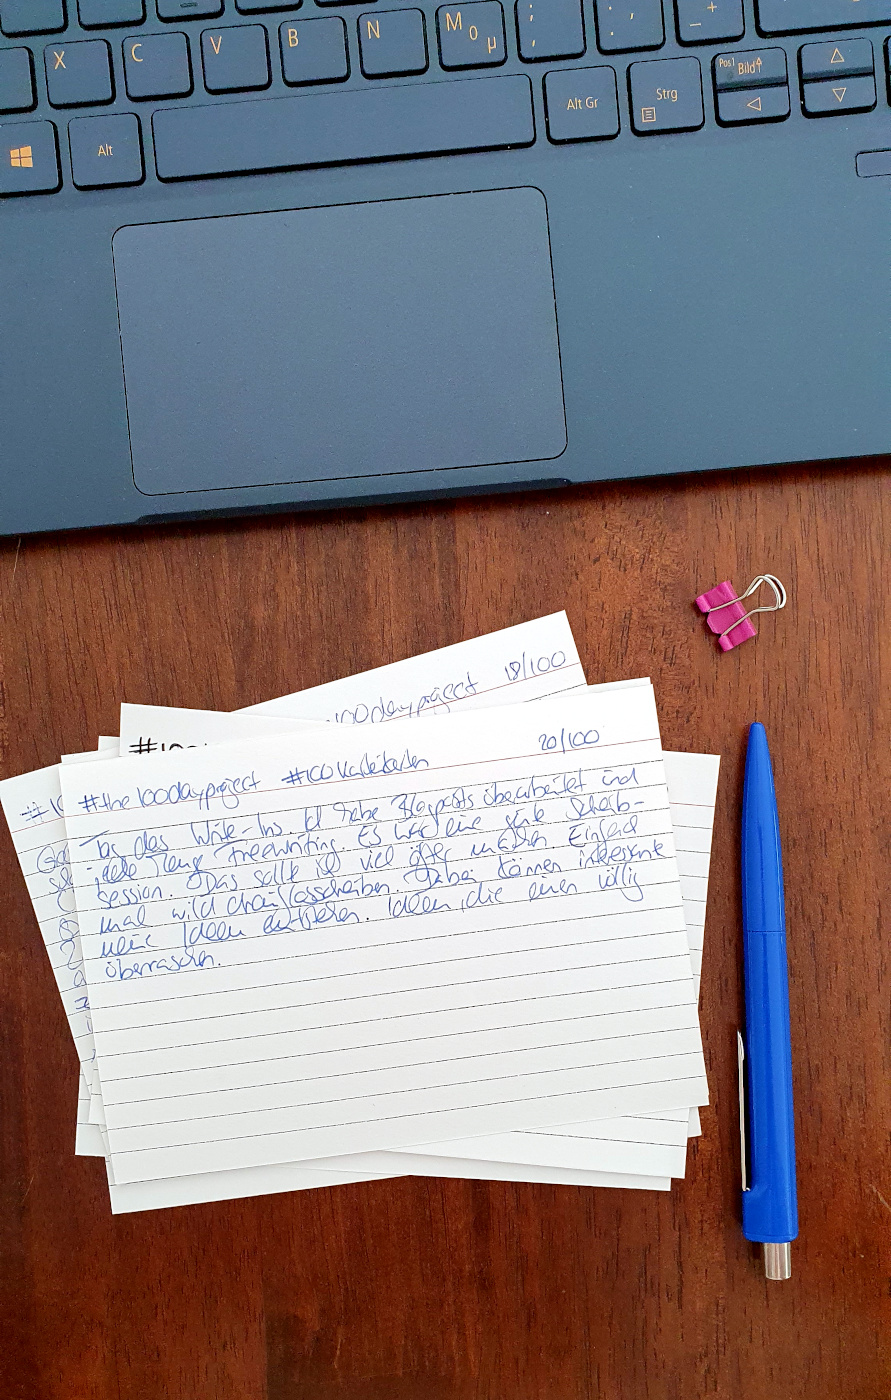 X C V B N M µ ; , : . _ -
Alt Alt Gr Strg Pos1 Bild
18/100
100dayproject
#the100dayproject #100Karteikarten 20/100
Tag des Write-Ins. Ich habe Blogposts überarbeitet und
jede Menge Freewriting. Es war eine gute Schreib-
session. Das sollte ich viel öfter machen. Einfach
mal wild drauflosschreiben. Dabei können interessante
neue Ideen entstehen. Ideen, die einen völlig
überraschen.